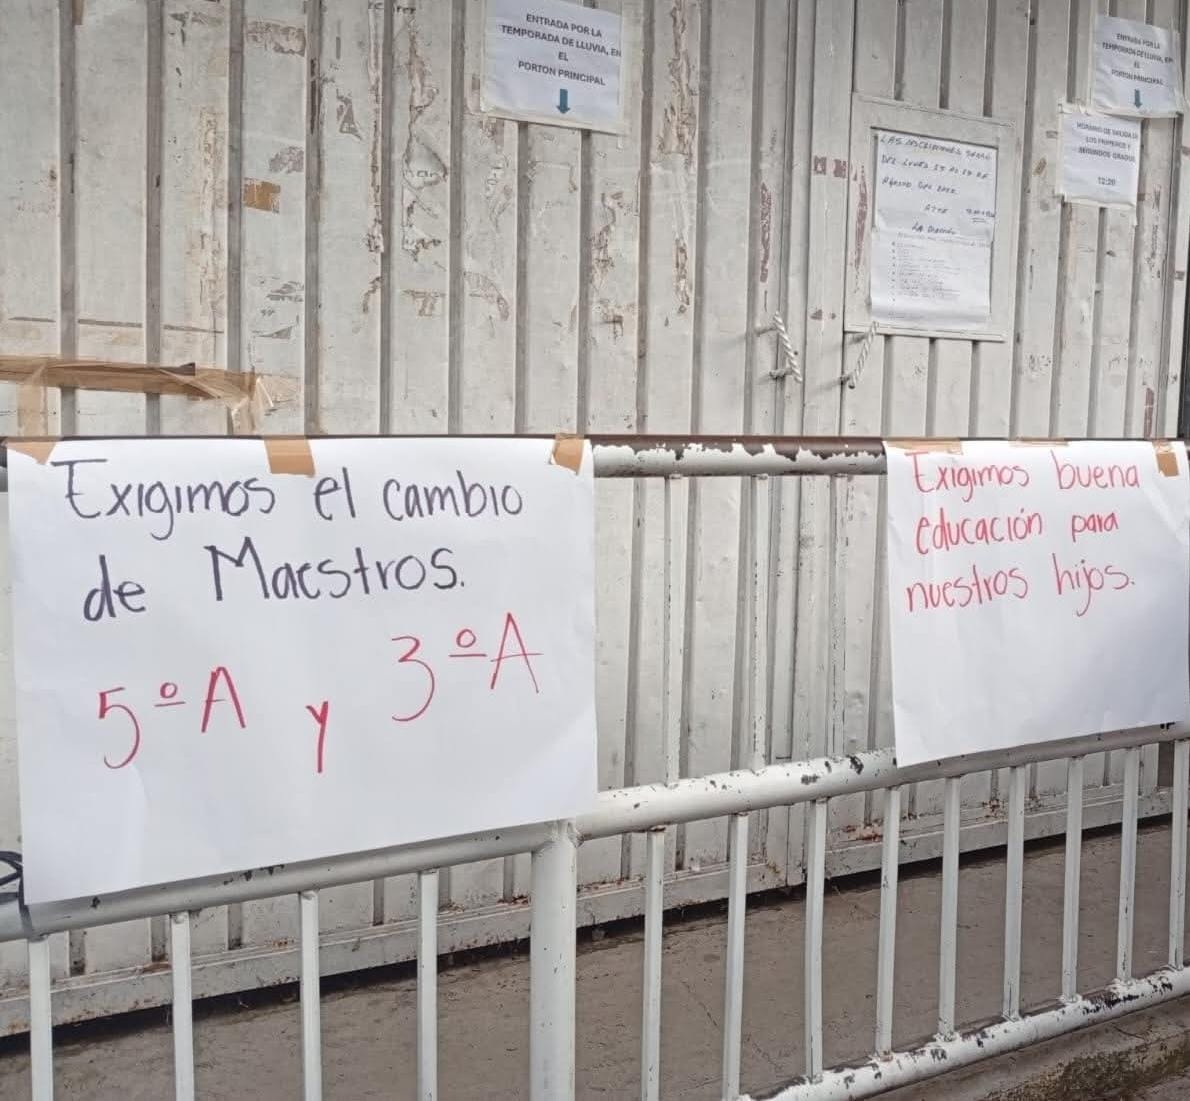 ENTRADA POR LA
TEMPORADA DE LLUVIA, EN
EL
PORTON PRINCIPAL
ENTRADA POR LA
TEMPORADA DE LLUVIA, EN
EL
PORTON PRINCIPAL
HORARIO DE SALIDA DE
LOS PRIMEROS Y
SEGUNDOS GRADOS
12:20
LAS INSCRIPCIONES SERÁN
DEL LUNES AL DE
ATTE
LA DIRECCIÓN
Exigimos el cambio
de Maestros.
5º A y 3º A
Exigimos buena
educación para
nuestros hijos.